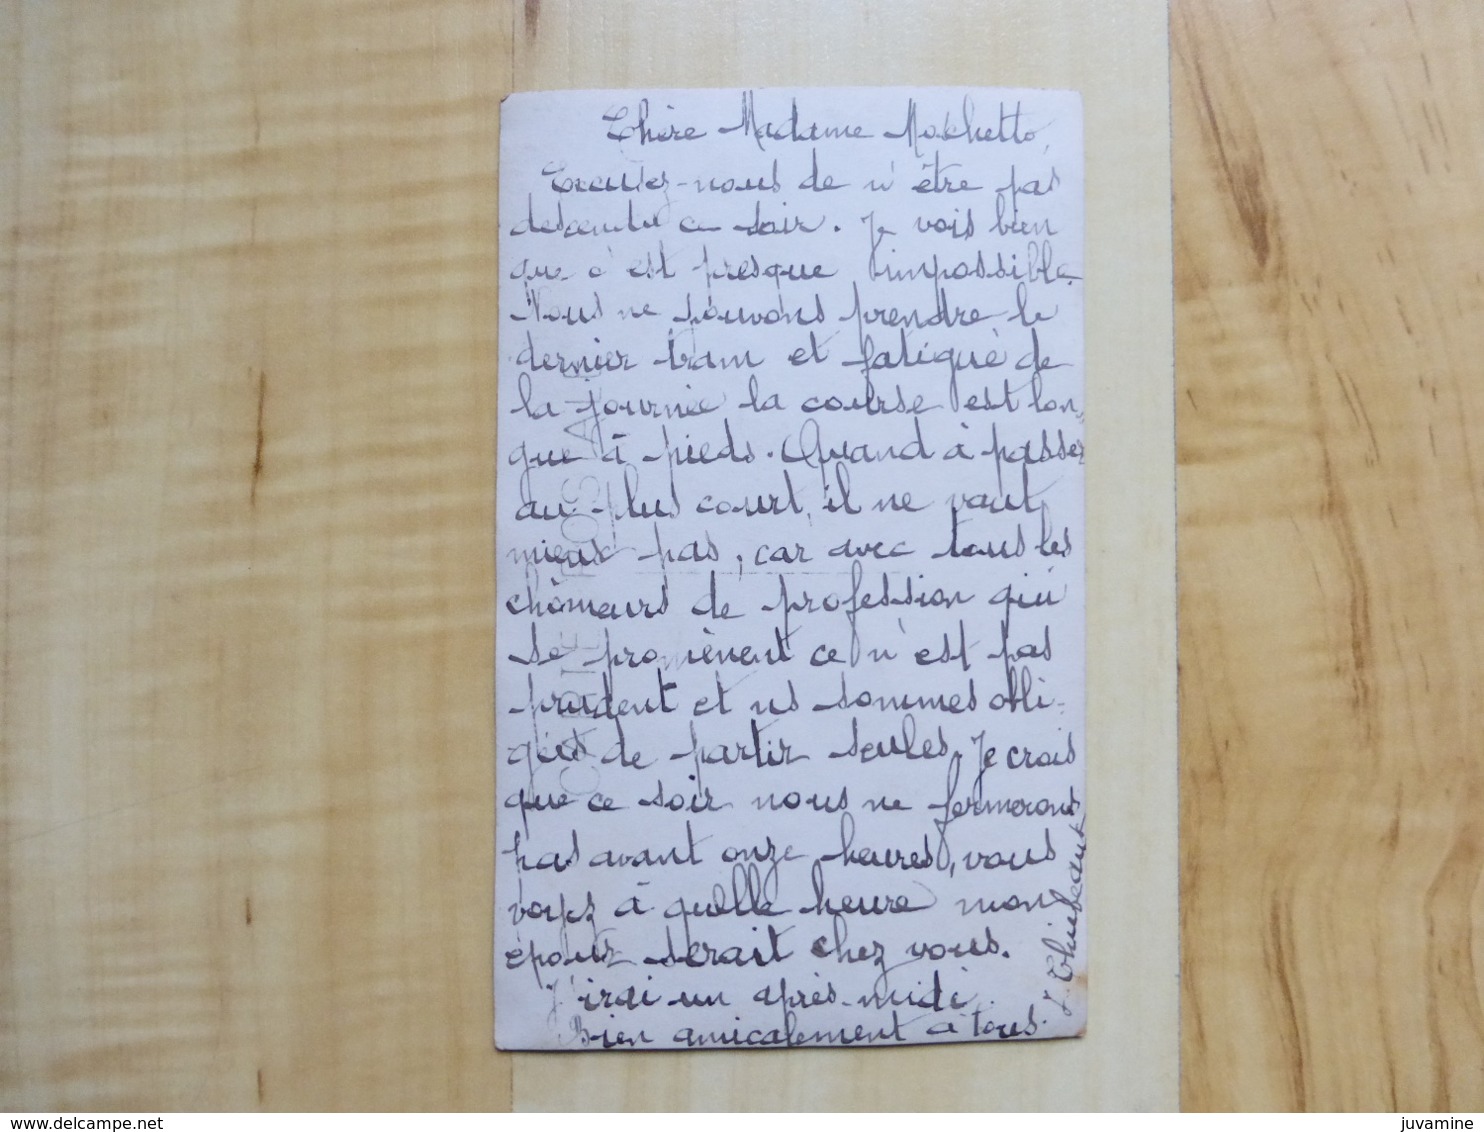 Chère Madame Mokhetto,
Excusez-nous de n'être pas
descendu ce soir. Je vois bien
que c'est presque impossible.
Nous ne pouvons prendre le
dernier tram et fatigué de
la journée la course est lon-
gue à pieds. Quand à passer
au plus court, il ne vaut
mieux pas, car avec tous les
chômeurs de profession qui
se promènent ce n'est pas
prudent et ns sommes obli-
gées de partir seules. Je crois
que ce soir nous ne fermerons
pas avant onze heures, vous
voyez à quelle heure mon
époux serait chez vous.
J'irai un après-midi.
Bien amicalement à tous.
J. Thiebeaux
CARTE POSTALE
delcampe.net
juvamine